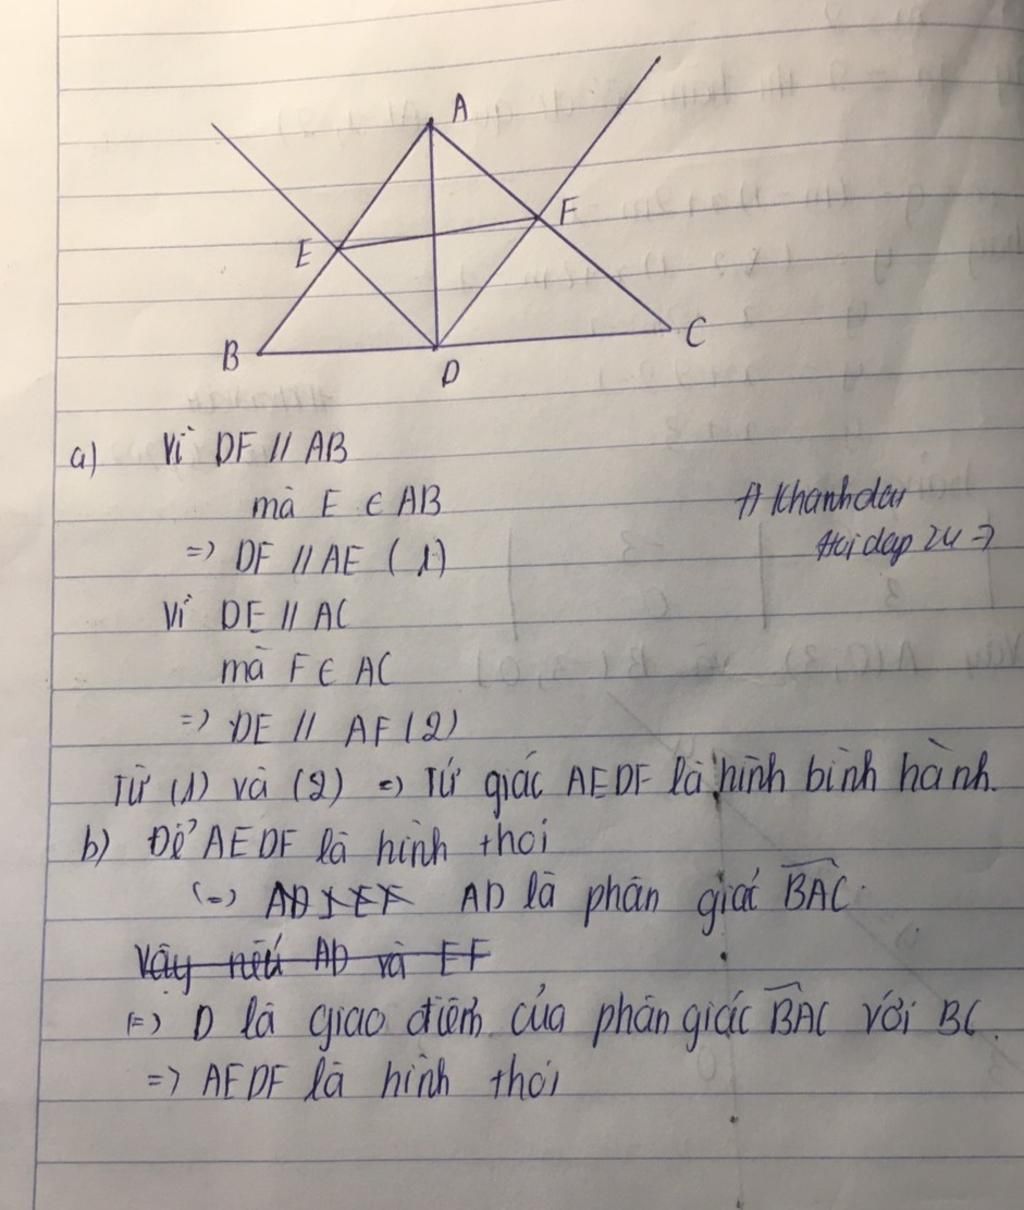 A
E
F
B
C
D
a) Vì DF // AB
mà E ∈ AB
=> DF // AE (1)
# Khanhdau
Hoidap 24
Vì DE // AC
mà F ∈ AC
=> DE // AF (2)
Từ (1) và (2) => Tứ giác AEDF là hình bình hành.
b) Để AEDF là hình thoi
(=) AD ⊥ EF AD là phân giác BAC.
Vậy nếu AD và EF
(=) D là giao điểm của phân giác BAC với BC.
=> AEDF là hình thoi